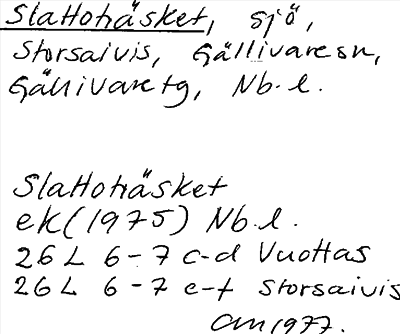 Slattoträsket, sjö,
Storsaivis, Gällivare sn,
Gällivare tg, Nb. l.
Slattoträsket
ek (1975) Nb. l.
26 L 6-7 c-d Vuottas
26 L 6-7 e-f Storsaivis
1977.